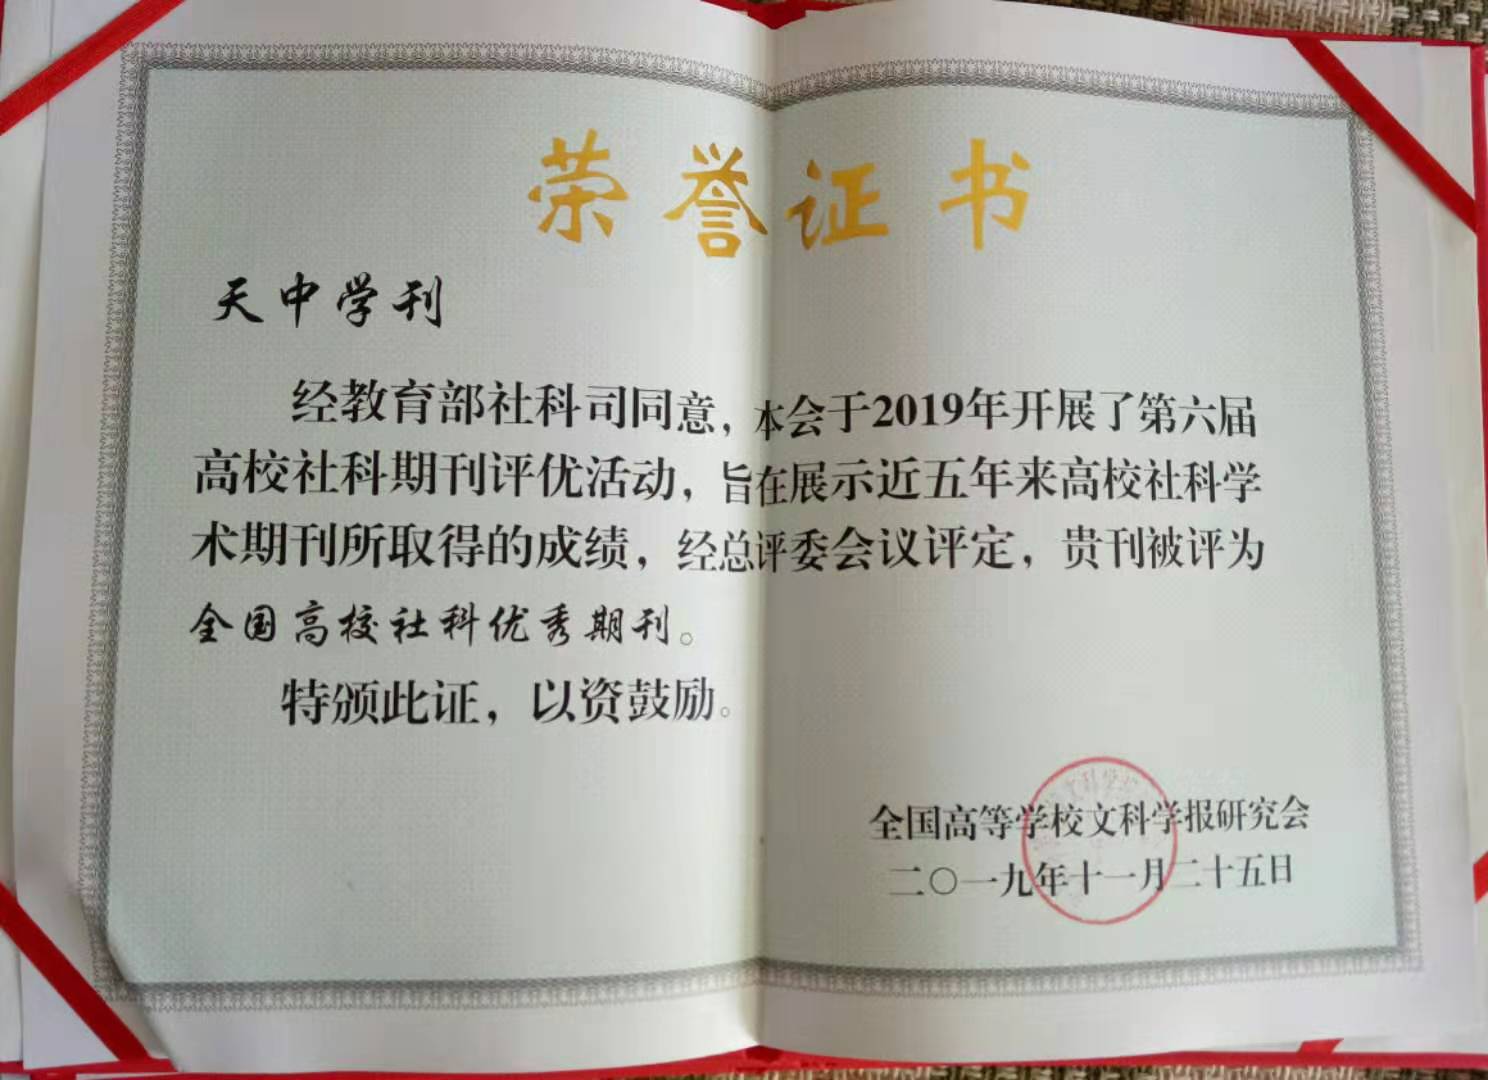 荣誉证书
天中学刊
经教育部社科司同意，本会于2019年开展了第六届
高校社科期刊评优活动，旨在展示近五年来高校社科学
术期刊所取得的成绩，经总评委会议评定，贵刊被评为
全国高校社科优秀期刊。
特颁此证，以资鼓励。
全国高等学校文科学报研究会
二〇一九年十一月二十五日